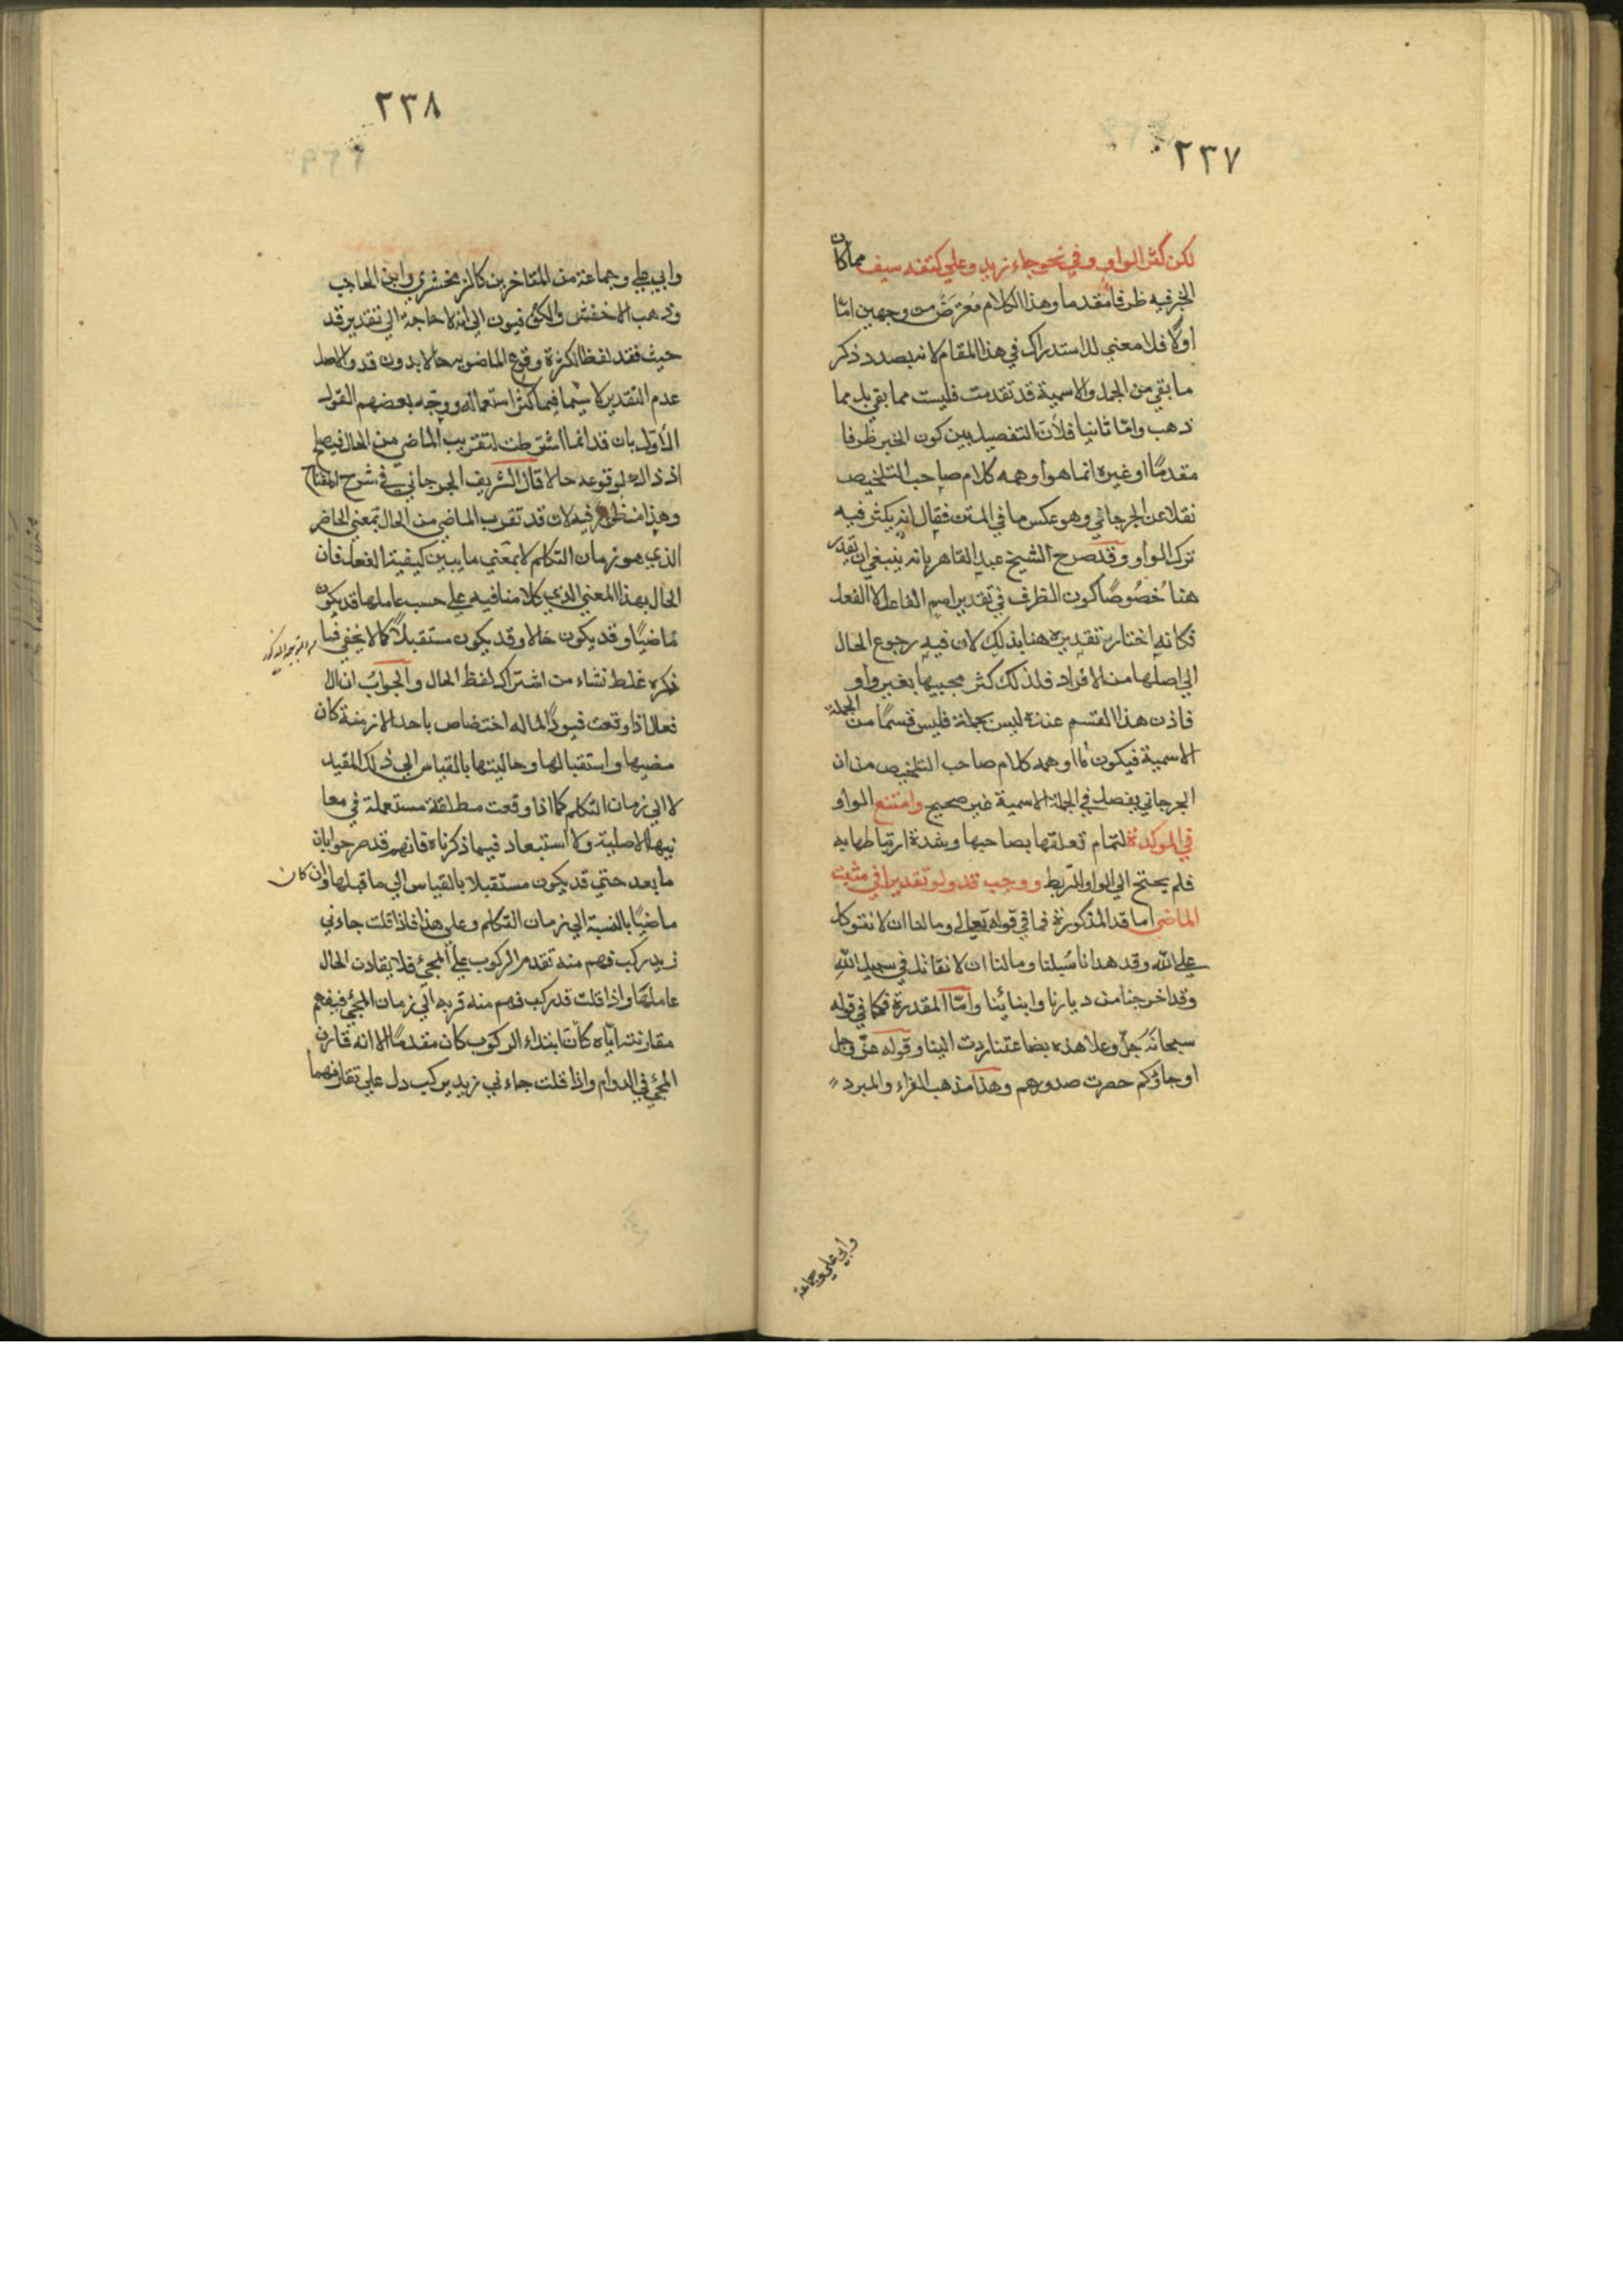 ٢٣٧
لكن كثر الواو وفي نحو جاء زيد وعلي كتفه سيف مما كان
الخبر فيه ظرفا مقدما وهذا الكلام معترض من وجهين اما
اولا فلا معني للاستدراك في هذا المقام لانه بصدد ذكر
ما بقي من الجمل والاسمية قد تقدمت فليست مما بقي بل مما
ذهب واما ثانيا فلأن التفصيل بين كون الخبر ظرفا
مقدمًا او غيره انما هو أوهمه كلام صاحب التلخيص
نقلا عن الجرجاني وهو عكس ما في المتن فقال انه يكثر فيه
ترك الواو وقد صرح الشيخ عبد القاهر بانه ينبغي ان تقدر
هنا خُصُوصًا كون الظرف في تقدير اسم الفاعل لا الفعل
فكانه اختار تقديره هنا بذلك لان فيه رجوع الحال
الي اصلها من الافراد فلذلك كثر مجيبها بغير واو
فاذن هذا القسم عنده ليس بجملة فليس قسمًا من الجملة
الاسمية فيكون ما أوهمه كلام صاحب التلخيص من ان
الجرجاني يفصل في الجملة الاسمية غير صحيح وامتنع الواو
في الموكدة لتمام تعلقها بصاحبها وشدة ارتباطها به
فلم يحتج الي الواو للربط ووجب قد ولو تقديرا في مثبت
الماضي اما قد المذكورة فما في قوله تعالي وما لنا ان لا نتوكل
علي الله وقد هدانا سُبلنا وما لنا ان لا نقاتل في سبيل الله
وقد اخرجنا من ديارنا وابنائنا وأمّا المقدرة فكما في قوله
سبحانَهُ جلّ وعلا هذه بضاعتنا ردت الينا وقوله عزّ وجل
او جاؤكم حصرت صدورهم وهذا مذهب الفراء والمبرد
وابي علي وجماعة
٢٣٨
وابي علي وجماعة من المتاخرين كالزمخشري وابن الحاجب
وذهب الاخفش والكوفيون الي انه لا حاجة الي تقدير قد
حيث فقد لفظا لكثرة وقوع الماضويه حالا بدون قد والاصل
عدم التقدير لا سيّما فيما كثر استعماله ووجّه بعضهم القول
الأوّل بان قد انما اشترطت لتقريب الماضي من الحال فيصلح
اذ ذاك لوقوعه حالا قال الشريف الجرجاني في شرح المفتاح
وهذا منظور فيه لان قد تقرب الماضي من الحال بمعني الحاضر
الذي هو زمان التكلم لا بمعني ما يبين كيفية الفعل فان
الحال بهذا المعني الذي كلامنا فيه علي حسب عاملها قد يكون
مَاضيًا وقد يكون حالا وقد يكون مستقبلاً كما لا يخفي فما
من التوجيه المذكور
ذكره غلط نشاء من اشتراك لفظ الحال والجوابُ ان الا
فعال اذا وقعت قيودًا لما له اختصاص باحد الازمنة كان
مضيها واستقبالها وحاليتها بالقياس الي ذلك المقيد
لا الي زمان التكلم كما اذا وقعت مطلقة مستعملة في معا
نيها الاصلية ولا استبعاد فيما ذكرناه فانهم قد صرحوا بان
ما بعد حتي قد يكون مستقبلا بالقياس الي ما قبلها وان كان
ماضيًا بالنسبة الي زمان التكلم وعلي هذا فاذا قلت جاءني
زيد ركب فهم منه تقدم الركوب علي المجيء فلا يقارن الحال
عاملها واذا قلت قد ركب فهم منه قربه الي زمان المجيء فيفهم
مقارنته ايّاه كأن ابتداء الركوب كان مقدمًا الا انه قارن
المجيء في الدوام واذا قلت جاءني زيد يركب دل علي تقارنهما